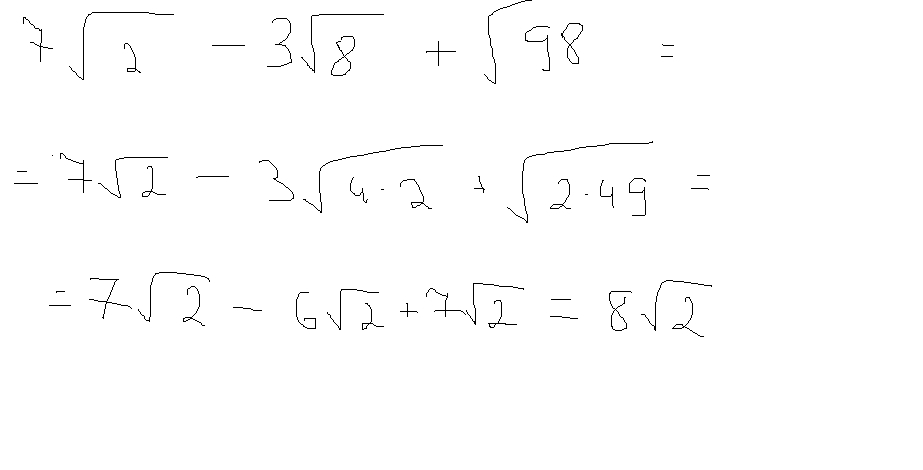 7√2 - 3√8 + √98 =
= 7√2 - 3√4·2 + √2·49 =
= 7√2 - 6√2 + 7√2 = 8√2